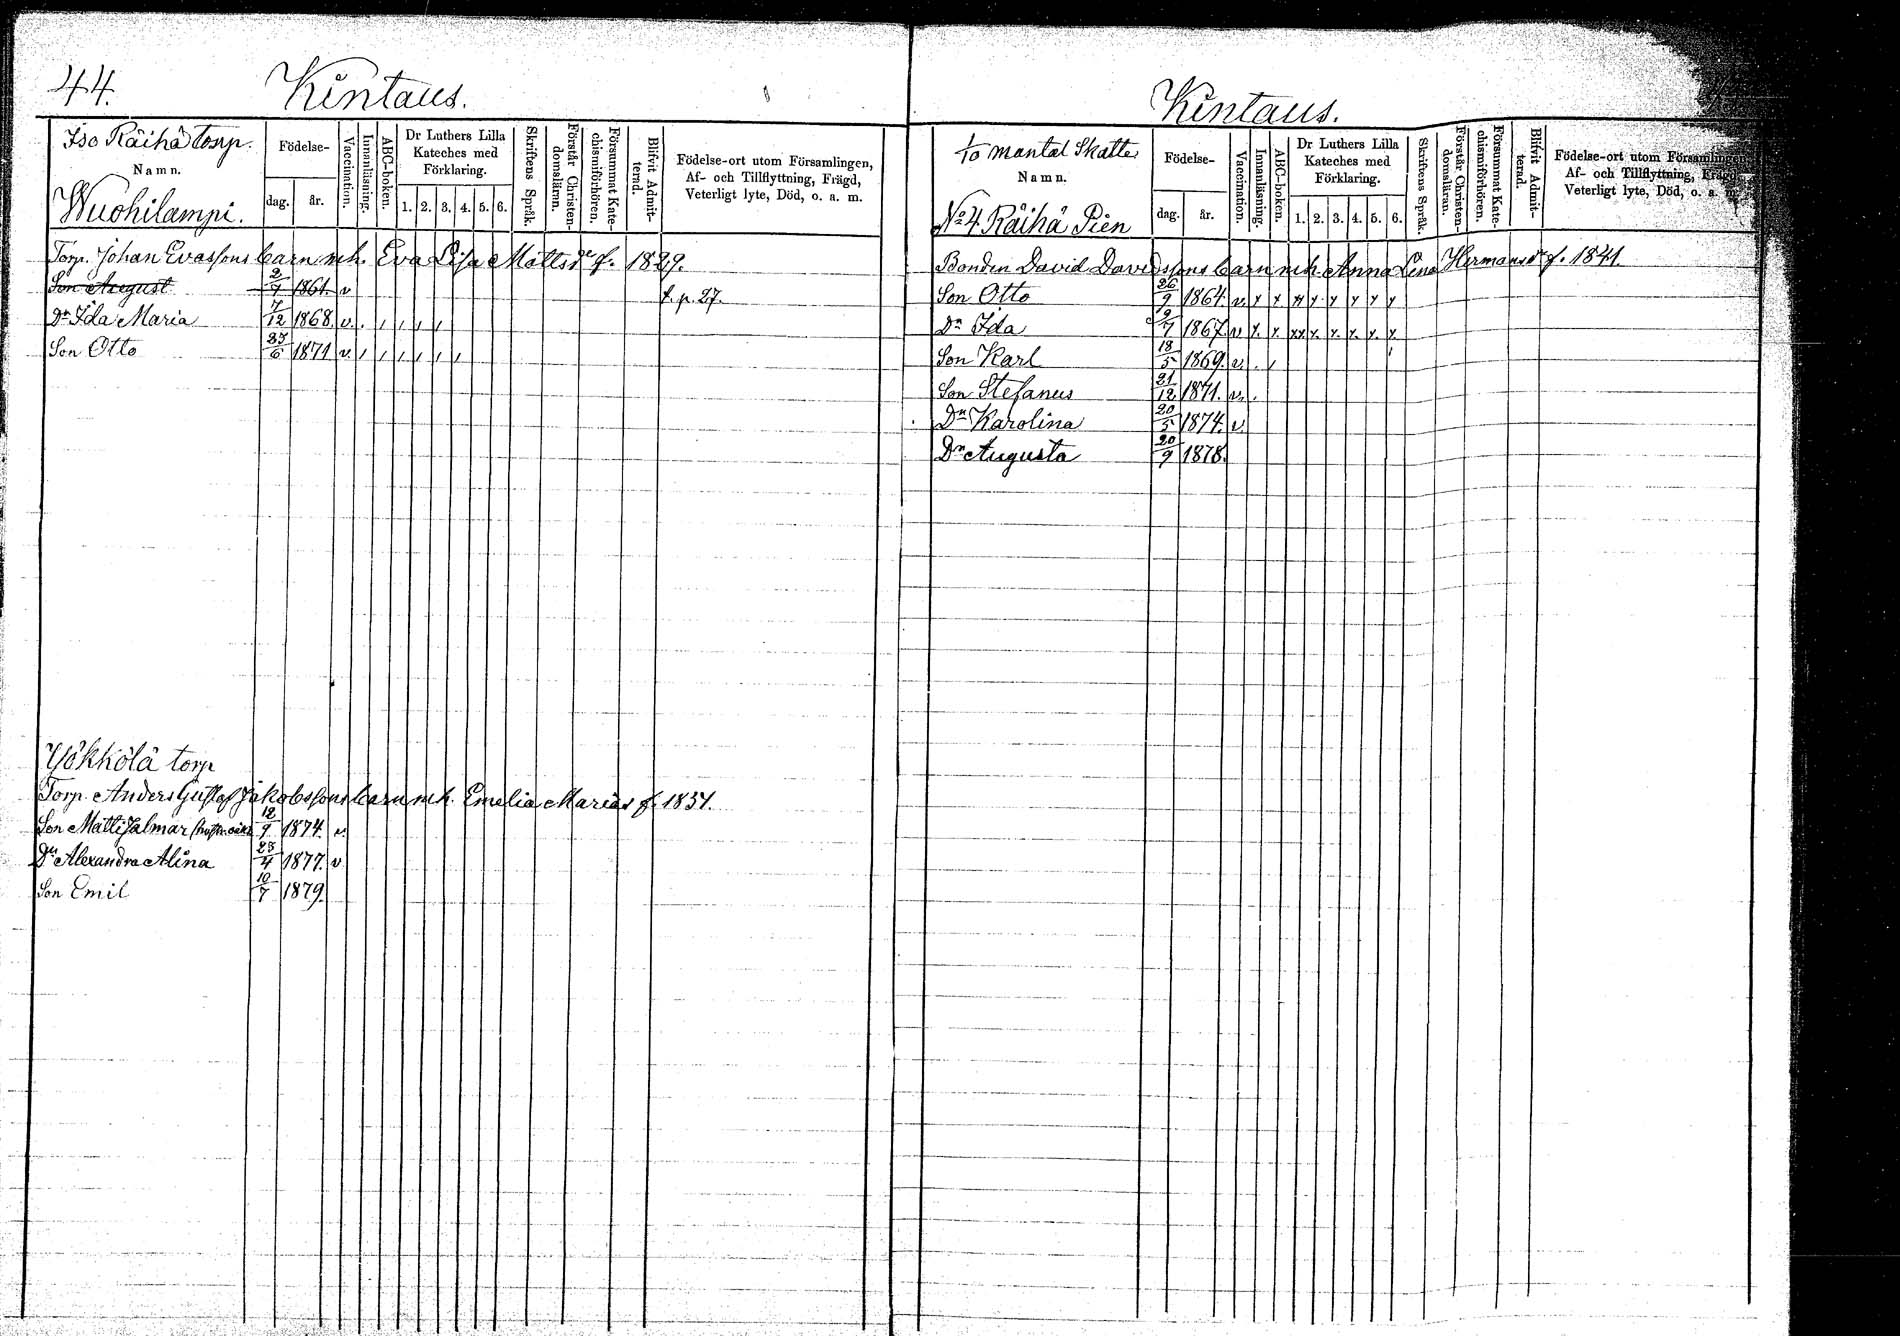 44.
Kintaus.
Iso Räihä torp.
Namn.
Wuohilampi.
Födelse-
dag.
år.
Vaccination.
Innanläsning.
ABC-boken.
Dr Luthers Lilla
Kateches med
Förklaring.
1. 2. 3. 4. 5. 6.
Skriftens Språk.
Förstår Christen-
domslärnn.
Försummat Kate-
chismiförhören.
Blifvit Admit-
terad.
Födelse-ort utom Församlingen,
Af- och Tillflyttning, Frägd,
Veterligt lyte, Död, o. a. m.
Torp. Johan Evassons barn m. h. Eva Lisa Mattsdr f. 1829.
Son August 2/7 1861. v f. p. 27.
Dr Ida Maria 7/12 1868. v. . / / / / /
Son Otto 23/6 1871 v. / / / / / /
Yökkölä torp
Torp. Anders Gustaf Jakobssons barn m. h. Emelia Mariasd f. 1851.
Son Matti Jalmar 12/9 1874. v.
Dr Alexandra Alina 23/4 1877. v
Son Emil 10/7 1879.
Kintaus.
1/10 mantal Skatte
Namn.
No 4 Räihä Pien
Födelse-
dag.
år.
Vaccination.
Innanläsning.
ABC-boken.
Dr Luthers Lilla
Kateches med
Förklaring.
1. 2. 3. 4. 5. 6.
Skriftens Språk.
Förstår Christen-
domsläran.
Försummat Kate-
chismiförhören.
Blifvit Admit-
terad.
Födelse-ort utom Församlingen,
Af- och Tillflyttning, Frägd,
Veterligt lyte, Död, o. a. m.
Bonden David Davidssons barn m. h. Anna Lena Hermansdr f. 1841.
Son Otto 26/9 1864. v. x x xx x x x x x
Dr Ida 9/7 1867. v x. x. xx. x. x. x. x. x.
Son Karl 18/5 1869. v. . /
Son Stefanus 21/12 1871. v. .
Dr Karolina 20/5 1874. v.
Dr Augusta 20/9 1878.